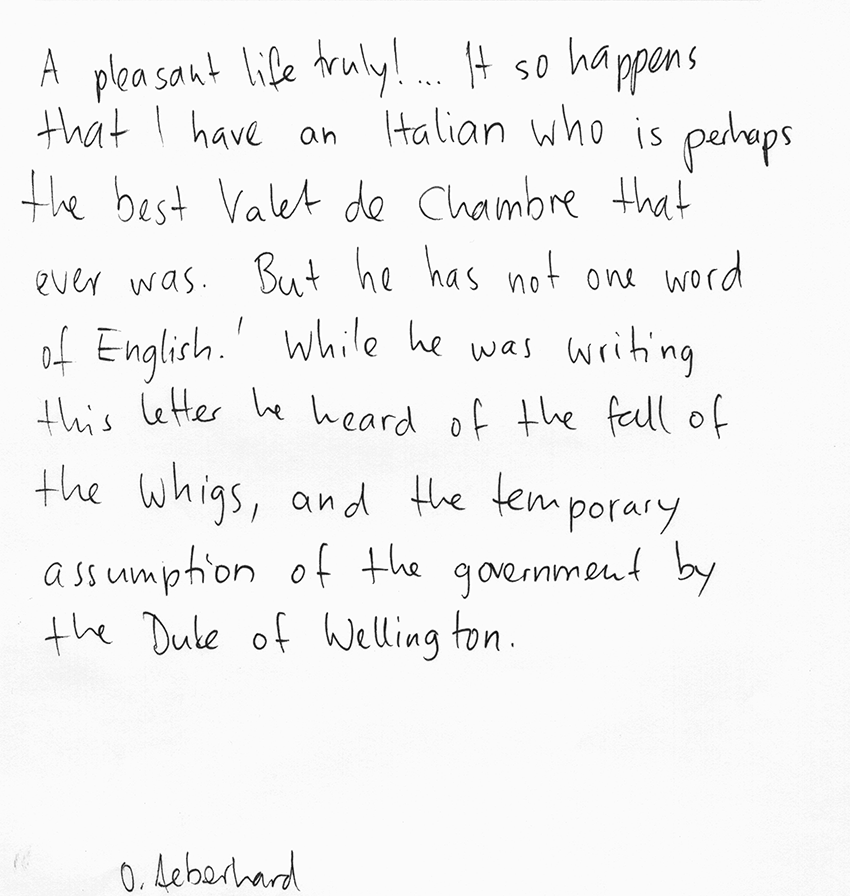 A pleasant life truly!... It so happens
that I have an Italian who is perhaps
the best Valet de Chambre that
ever was. But he has not one word
of English.' While he was writing
this letter he heard of the fall of
the Whigs, and the temporary
assumption of the government by
the Duke of Wellington.
O. Aeberhard